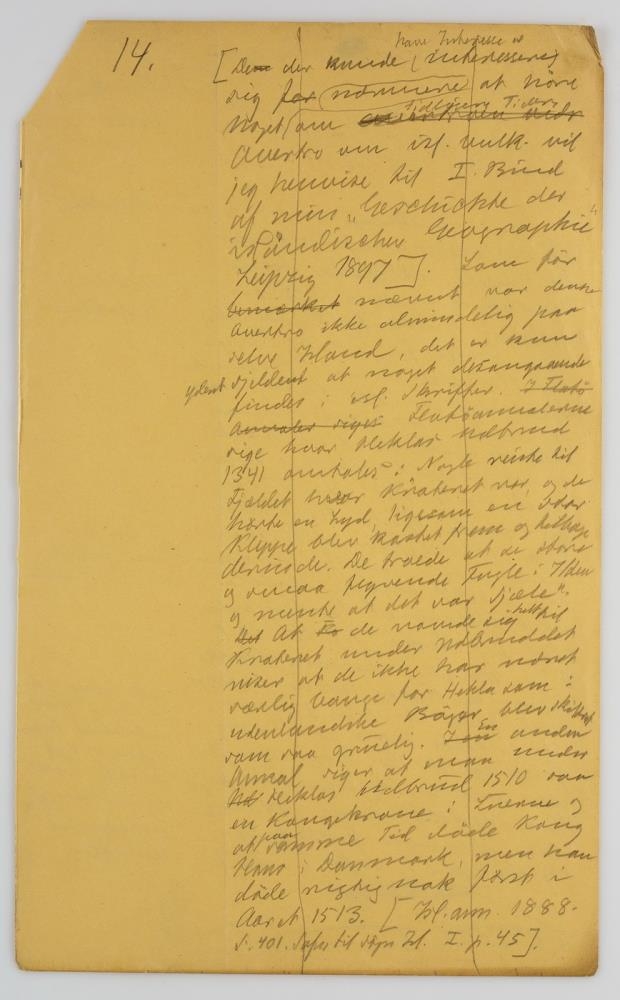 14.
have Interesse af
[Dem der kunde interessere
sig for nærmere at höre
Noget om tidligere Tiders
Overtro om isl. vulk. vil
jeg henvise til I. Bind
af min "Geschichte der
isländischen Geographie"
Leipzig 1897]. Som för
bemærket nævnt var denne
Overtro ikke almindelig paa
selve Island, det er kun
yderst sjeldent at noget desangaaende
findes i isl. Skrifter. I Flatö
Annaler siges Flatöannalerne
sige hvor Heklas Udbrud
1341 omtales: Nogle reiste til
Fjeldet hvor Krateret var, og de
hörte en Lyd, ligesom en stor
Klippe blev kastet frem og tilbage
derinde. De troede at se store
og smaa flyvende Fugle i Ilden
og mente at det var Sjæle".
Det At de vovede sig helt til
Krateret under Udbruddet
viser at de ikke har været
særlig bange for Hekla som i
udenlandske Böger blev skildret
som saa gruelig. I en En anden
Annal siger at man under
Heklas Udbrud 1510 saa
en Kongekrone i Luerne og
at paa samme Tid döde Kong
Hans i Danmark, men han
döde rigtignok först i
Aaret 1513. [Isl. ann. 1888.
S. 401. Safn til sögu Isl. I. p. 45].